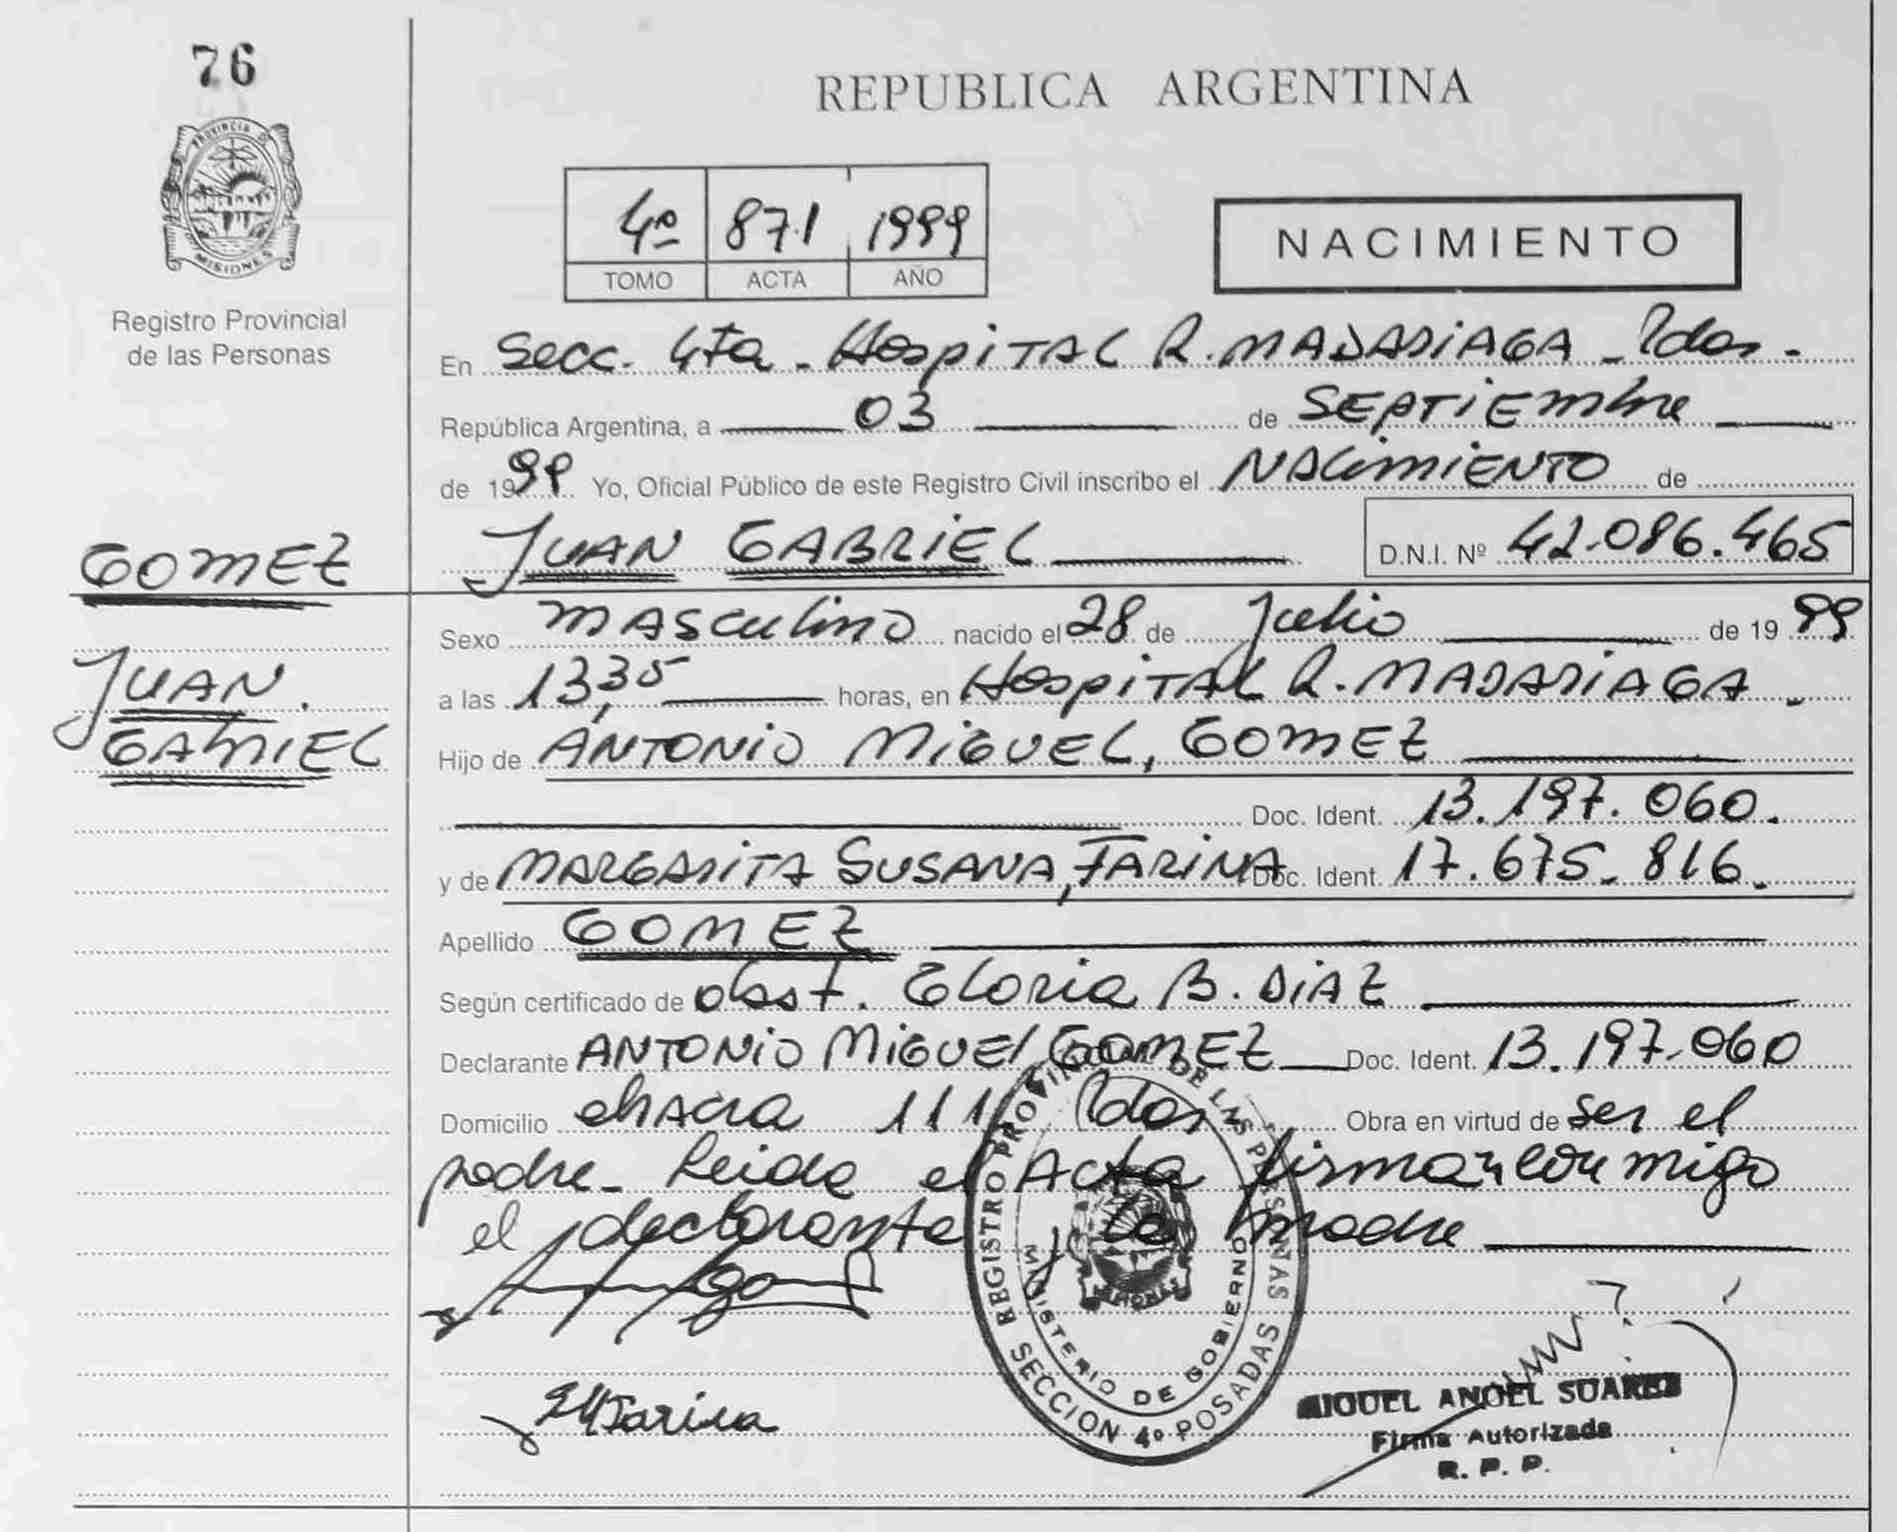 76
REPUBLICA ARGENTINA
PROVINCIA DE
MISIONES
Registro Provincial
de las Personas
4º 871 1999
TOMO ACTA AÑO
NACIMIENTO
En Secc. 4ta - Hospital R. MADARIAGA - Pdas -
República Argentina, a 03 de SEPTIEmbre
de 1999 Yo, Oficial Público de este Registro Civil inscribo el NACimiENTO de
JUAN GABRIEL D.N.I. Nº 42.086.465
GOMEZ
Sexo mASculino nacido el 28 de Julio de 1999
JUAN
GABRIEL
a las 13,35 horas, en HospiTAL R. MADARIAGA -
Hijo de ANTONIO MIGUEL, GOMEZ
Doc. Ident. 13.197.060.
y de MARGARITA SUSANA, FARINA Doc. Ident. 17.675.816.
Apellido GOMEZ
Según certificado de obst. Gloria B. DIAZ
Declarante ANTONIO MIGUEL GOMEZ Doc. Ident. 13.197.060
Domicilio chacra 111 Pdas Obra en virtud de ser el
padre - Leida el Acta firman conmigo
el declarante y la madre
REGISTRO PROVINCIAL DE LAS PERSONAS
MINISTERIO DE GOBIERNO
SECCION 4º POSADAS
Farina
MIGUEL ANGEL SUAREZ
Firma Autorizada
R. P. P.